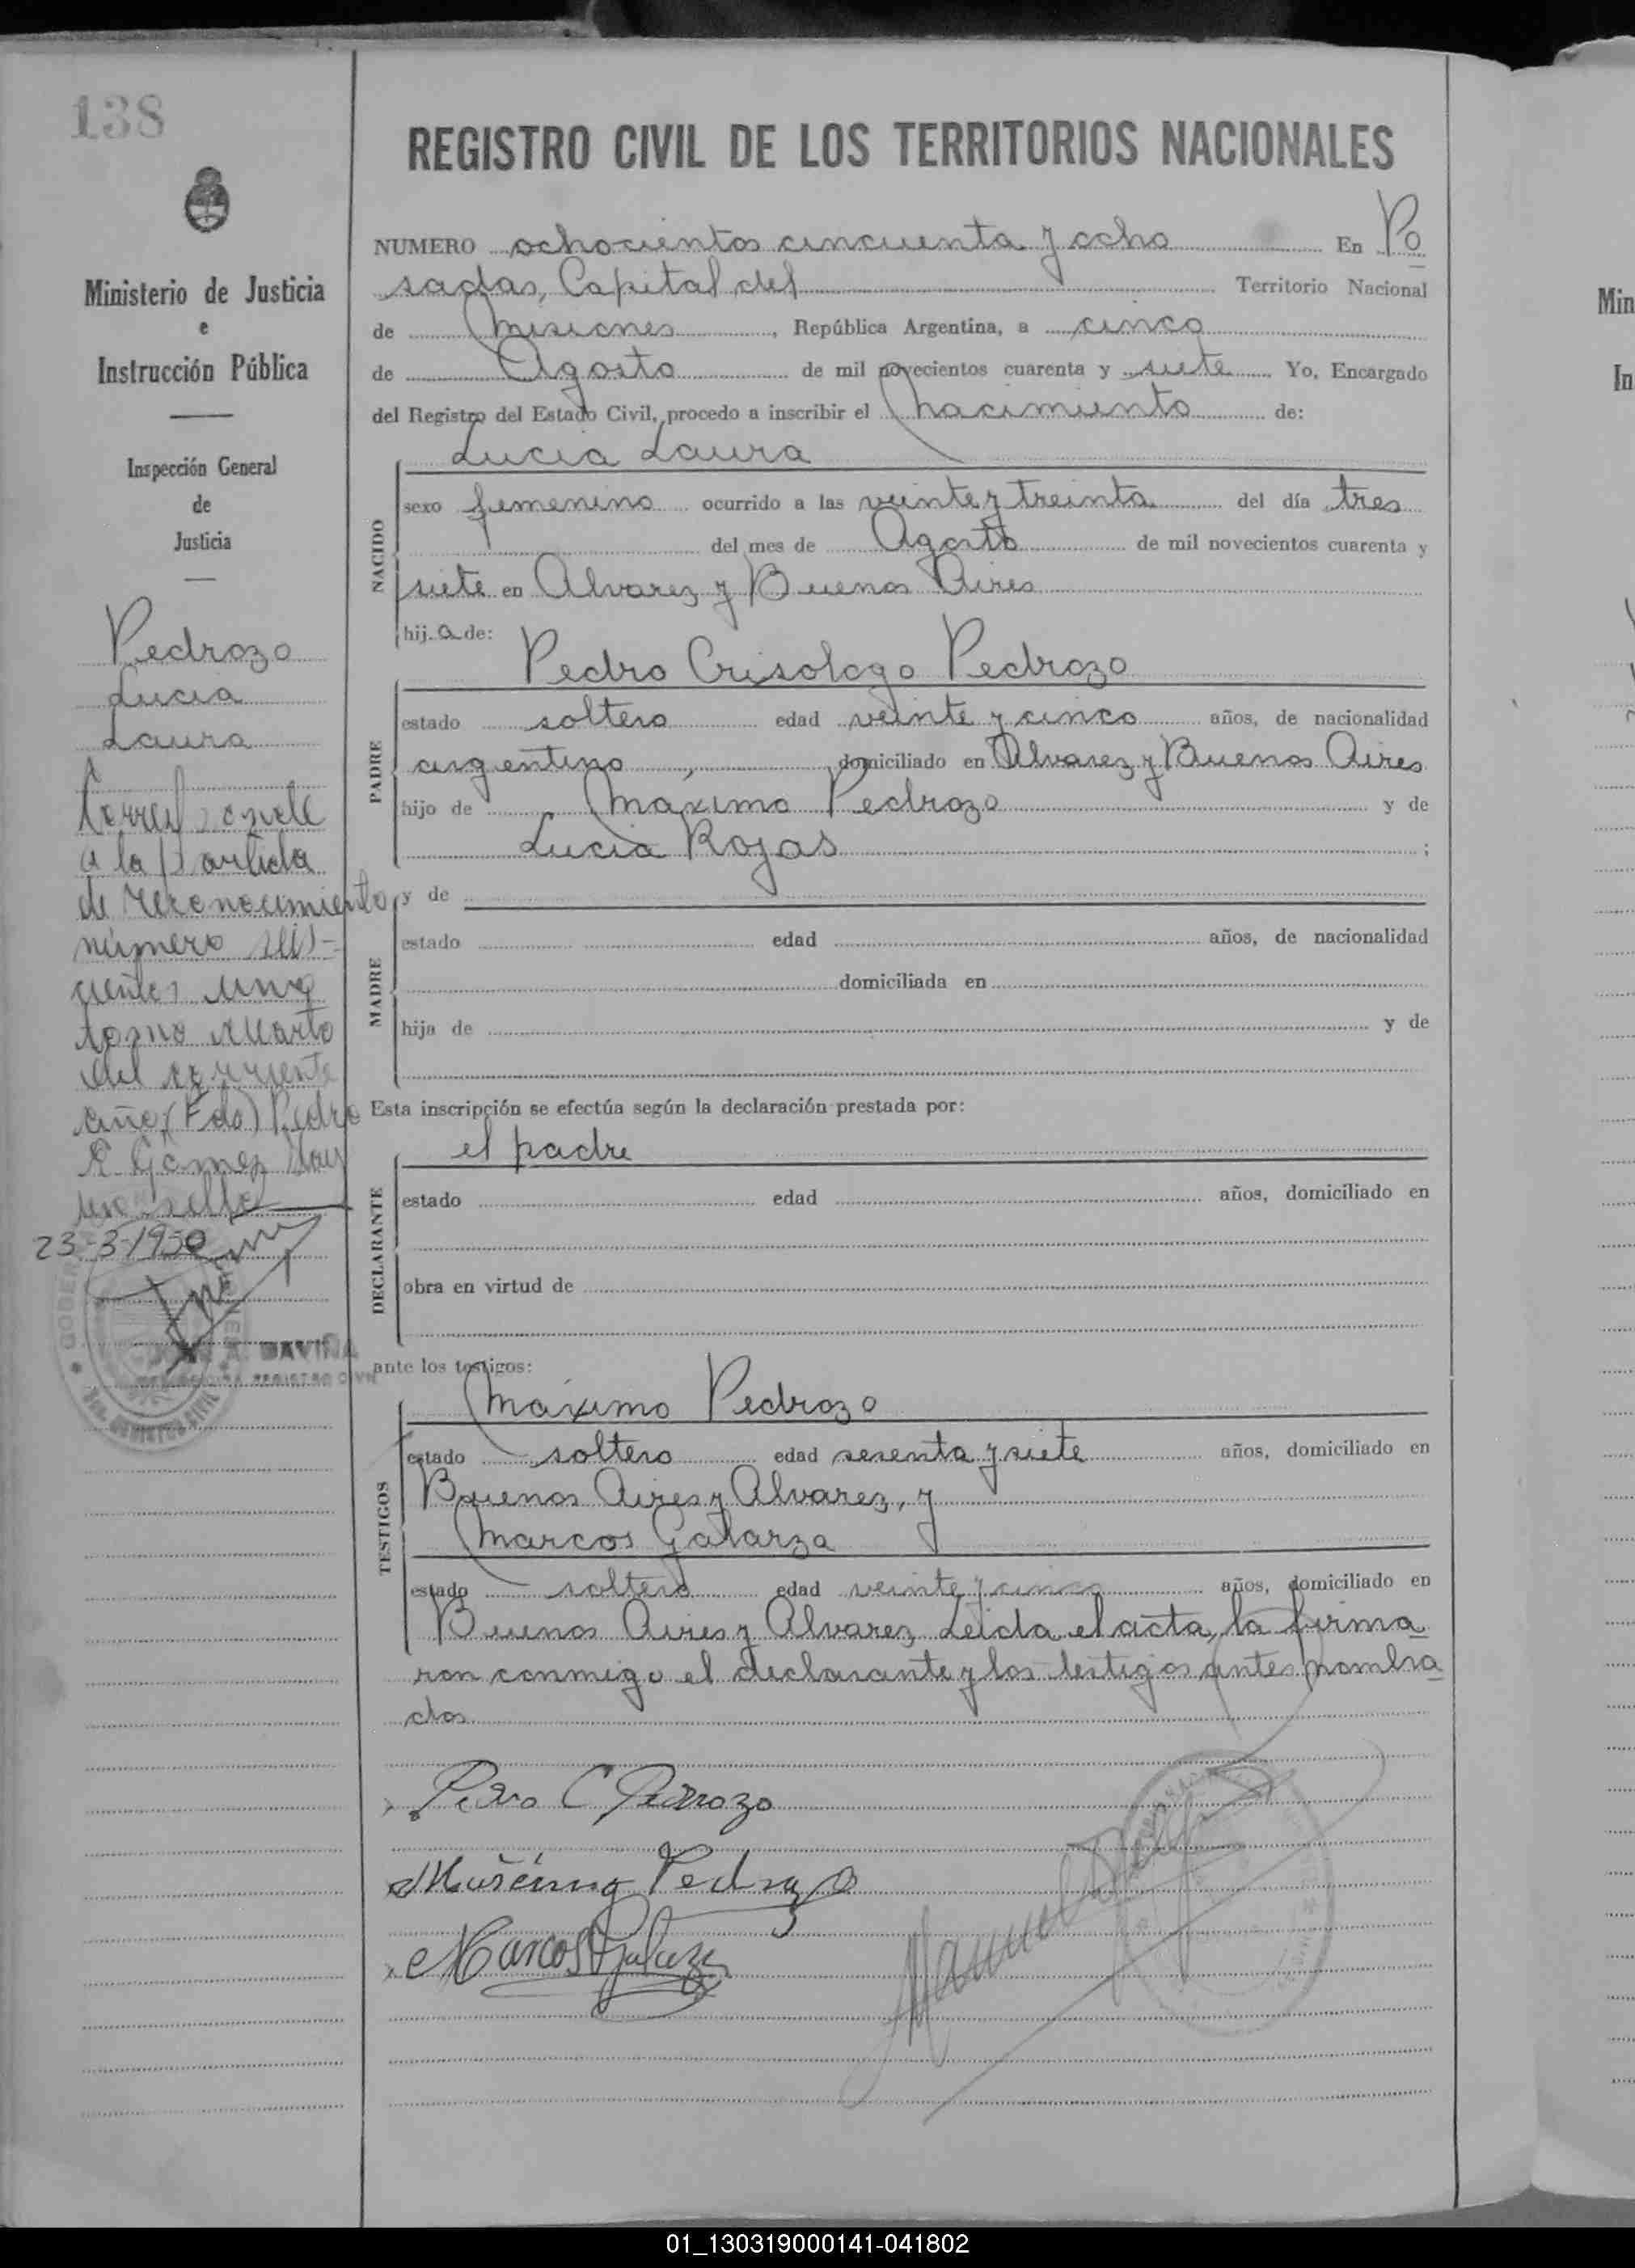 138
Ministerio de Justicia
e
Instrucción Pública
Inspección General
de
Justicia
Pedrozo
Lucia
Laura
a la Partida
de reconocimiento
número seis-
cientos uno
tomo cuarto
del corriente
año, (Fdo) Pedro
R Gomez Hay
un sello
23-3-1950
DAVIÑA
REGISTRO CIVIL DE LOS TERRITORIOS NACIONALES
NUMERO ochocientos cincuenta y ocho En Po
sadas, Capital del Territorio Nacional
de Misiones, República Argentina, a cinco
de Agosto de mil novecientos cuarenta y siete Yo, Encargado
del Registro del Estado Civil, procedo a inscribir el nacimiento de:
Lucia Laura
NACIDO
sexo femenino ocurrido a las veinte y treinta del día tres
del mes de Agosto de mil novecientos cuarenta y
siete en Alvarez y Buenos Aires
hija de:
Pedro Crisologo Pedrozo
PADRE
estado soltero edad veinte y cinco años, de nacionalidad
argentino, domiciliado en Alvarez y Buenos Aires
hijo de Maximo Pedrozo y de
Lucia Rojas ;
y de
MADRE
estado edad años, de nacionalidad
domiciliada en
hija de y de
Esta inscripción se efectúa según la declaración prestada por:
el padre
DECLARANTE
estado edad años, domiciliado en
obra en virtud de
ante los testigos:
Maximo Pedrozo
TESTIGOS
estado soltero edad sesenta y siete años, domiciliado en
Buenos Aires y Alvarez, y
Marcos Galarza
estado soltero edad veinte y cinco años, domiciliado en
Buenos Aires y Alvarez Leida el acta, la firma
ron conmigo el declarante y los testigos antes nombra
dos
Pedro C Pedrozo
Maximo Pedrozo
Marcos Galarza
Min
In
01_130319000141-041802